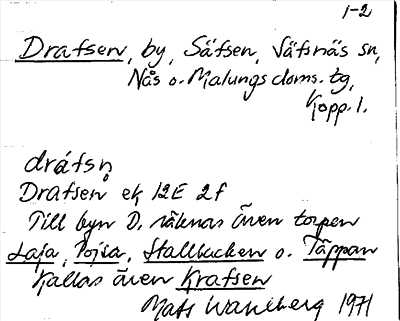 1-2
Drafsen, by, Säfsen, Säfsnäs sn,
Nås o. Malungs doms. tg,
Kopp. l.
dráfsn̥
Drafsen ek 12E 2f
Till byn D. räknas även torpen
Laja, Pojsa, Stallbacken o. Täppan
Kallas även Krafsen
Mats Wahlberg 1971